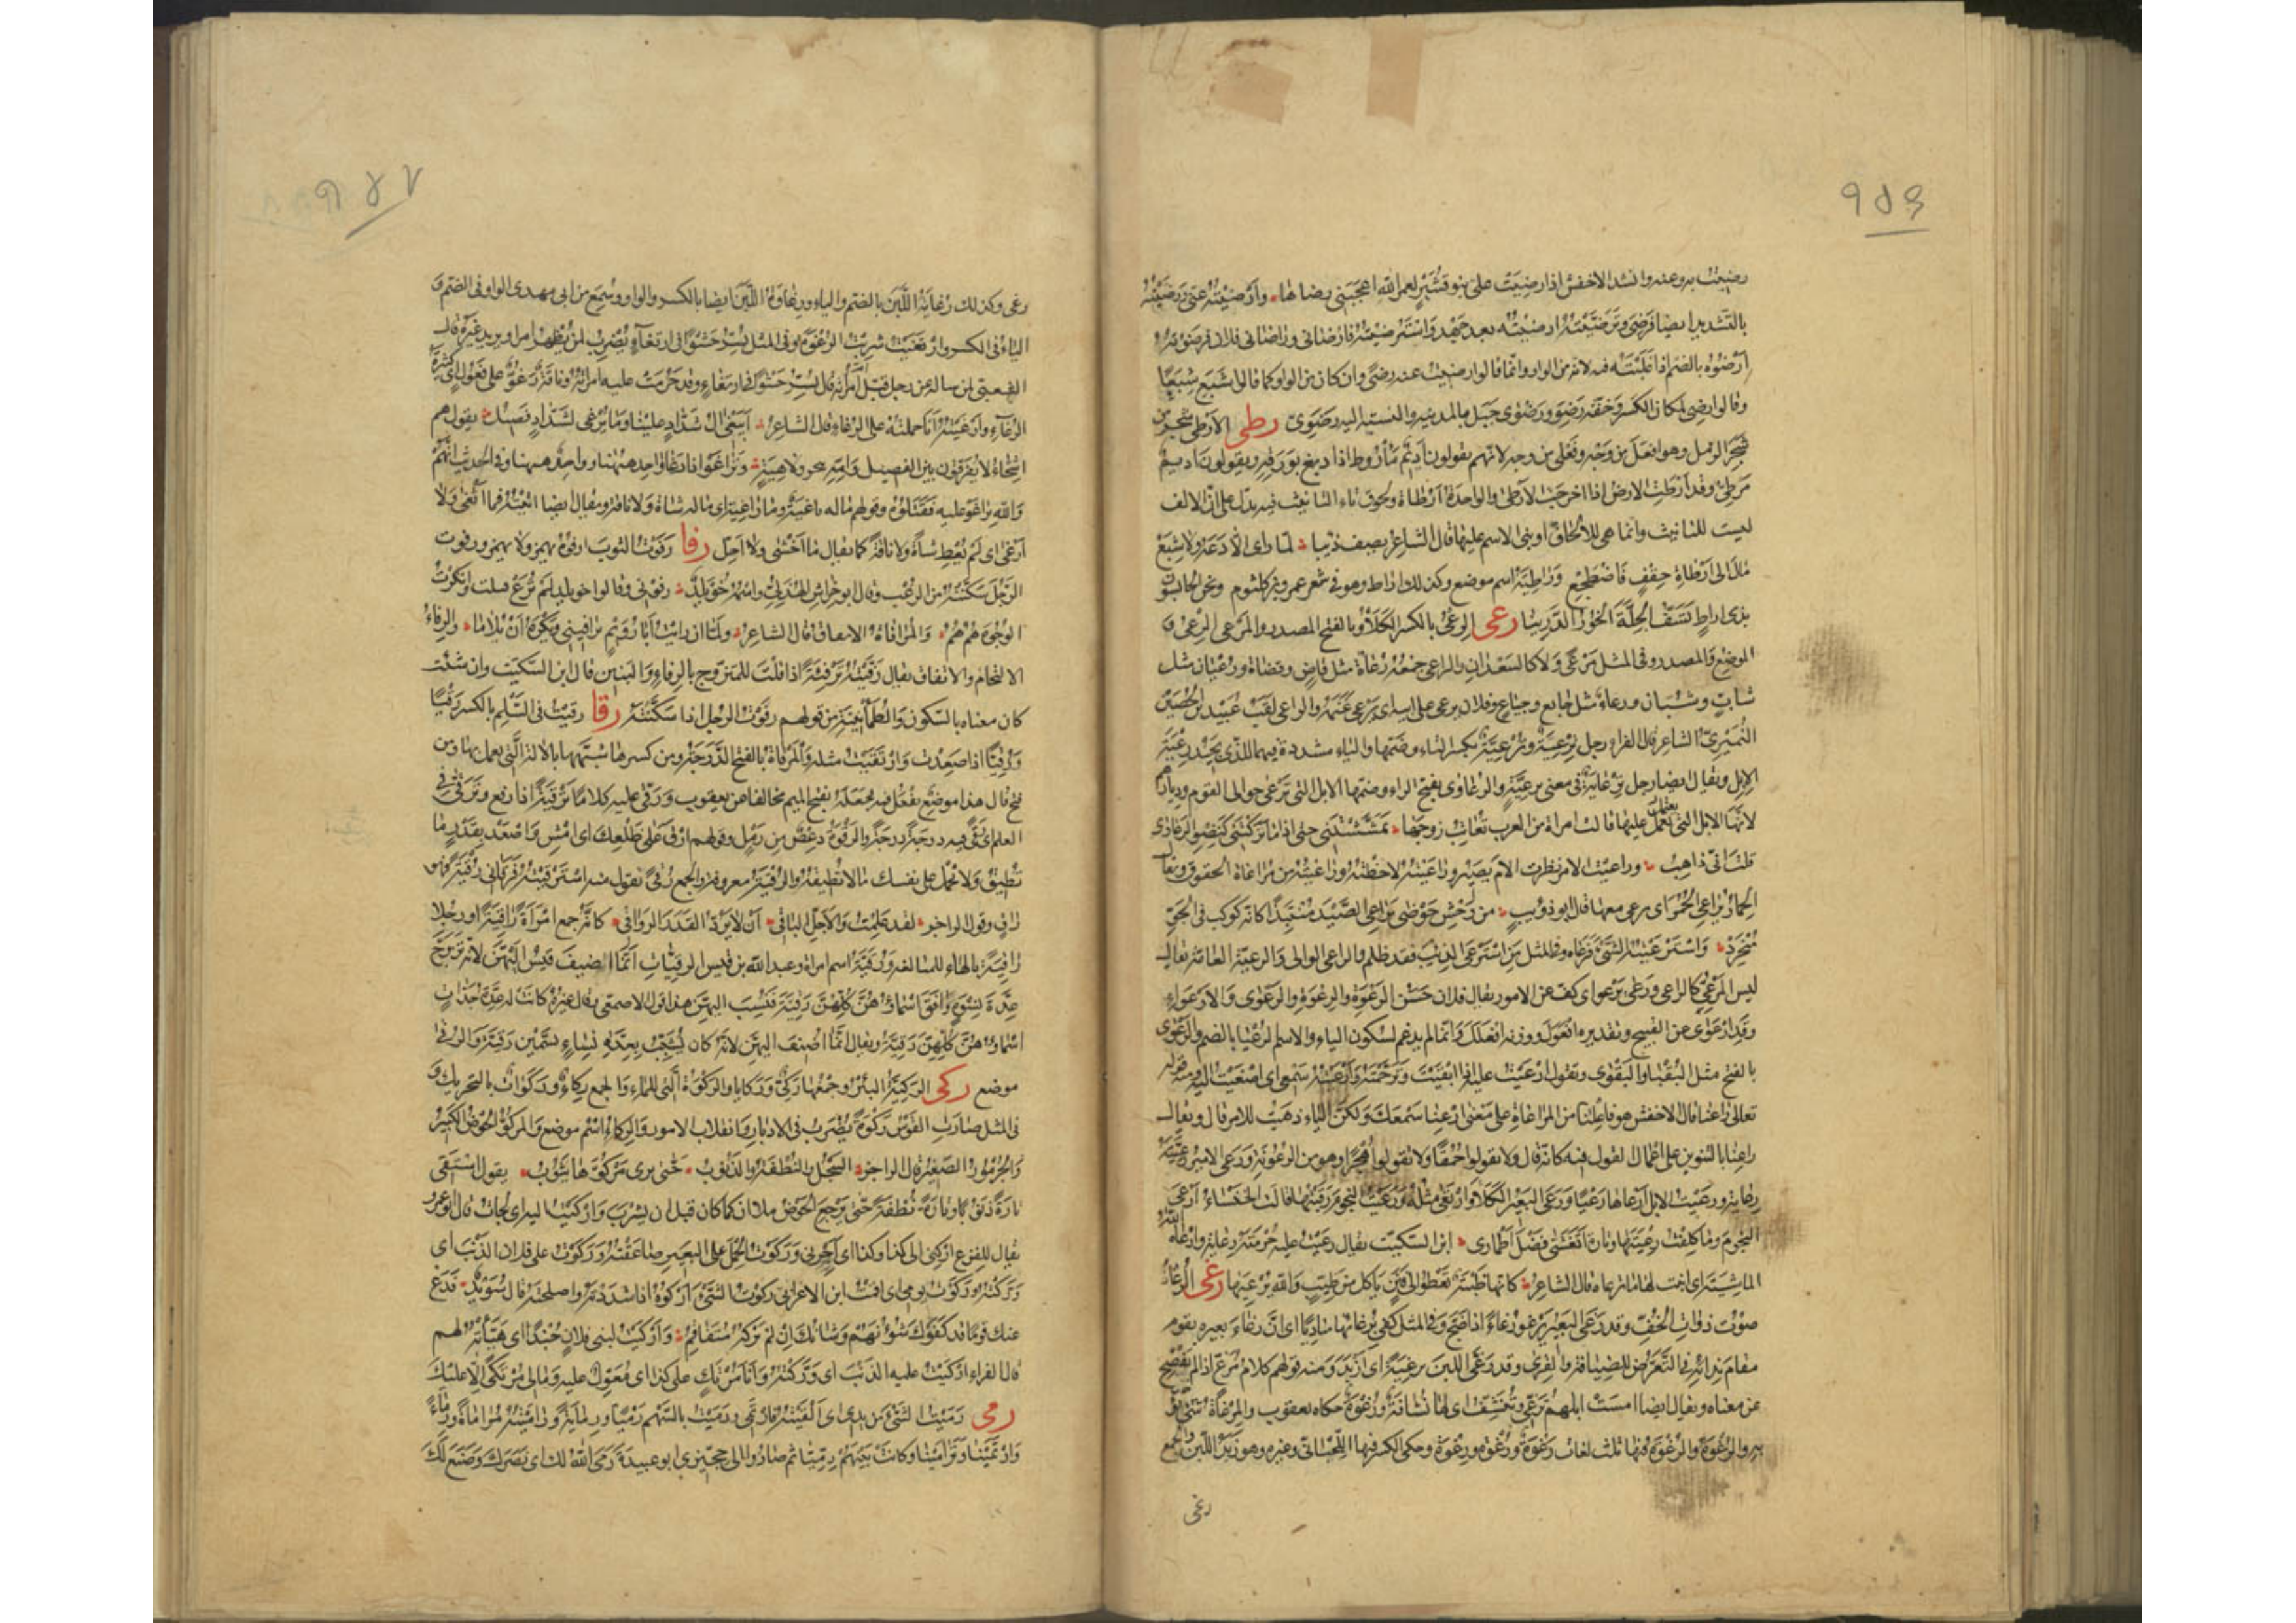 رضيت به وعنه وانشد الاخفش اذا رضيت على بنو قشير لعمر الله اعجبني رضاها وأرضيته عنى ورضيته
بالتشديد ايضا فرضى وترضيته ارضيته بعد جهد واسترضيته فارضانى وراضانى فلان فرضوته
ارضوه بالضم اذا غلبته فيه لانه من الواو وانما قالوا رضيت عنه رضى وان كان من الواو كما قالوا شبع شبعا
وقالوا رضى لمكان الكسر وحقه رضو ورضوى جبل بالمدينه والنسبه اليه رضوى رطى الارطى شجر من
شجر الرمل وهو افعل من وجه وفعلى من وجه لانهم يقولون اديم مأروط اذا دبغ بورقه ويقولون اديم
مرطى وقد ارطت الارض اذا اخرجت الارطى والواحدة ارطاة ولحوق تاء التانيث فيه يدل على ان الالف
ليست للتانيث وانما هى للالحاق او بنى الاسم عليها قال الشاعر يصف ذئبا لما راى ان لا دعه ولا شبع
مال الى ارطاة حقف فاضطجع وراطية اسم موضع وكذلك اراط وهو فى شعر عمرو بن كلثوم ونحن الحابسون
بذى اراط تسف الجلة الخور الدرينا رعى الرعى بالكسر الكلأ وبالفتح المصدر والمرعى الرعى و
الموضع والمصدر وفى المثل مرعى ولا كالسعدان والراعى جمعه رعاة مثل قاض وقضاة ورعيان مثل
شاب وشبان ورعاء مثل جايع وجياع وفلان يرعى على ابيه اى يرعى غنمه والراعى لقب عبيد بن الحصين
النميرى الشاعر قال الفراء رجل ترعية وترعية بكسر التاء وضمها والياء مشددة فيهما للذى يجيد رعية
الابل ويقال ايضا رجل ترعاية فى معنى ترعية والرعاوى بفتح الراء وضمها الابل التى ترعى حوالى القوم وديارهم
لانها الابل التى يعتمل عليها قالت امراة من العرب تعاتب زوجها تمششتنى حتى اذا ما تركتنى كنضو الرعاوى
قلت انى ذاهب وراعيت الامر نظرت الام يصير وراعيته لاحظته وراعيته من مراعاة الحقوق ويقال
الحمار يراعى الحمر اى يرعى معها قال ابو ذويب من وحش حوضى يراعى الصيد منتبذا كانه كوكب فى الجو
منحرد واسترعيته الشئ فرعاه وفى المثل من استرعى الذئب فقد ظلم والراعى الوالى والرعية العامة يقال
ليس المرعى كالراعى ورعى يرعو اى كف عن الامور يقال فلان حسن الرعوة والرعوة والرعوى والارعواء
وقد ارعوى عن القبيح وتقديره افعول ووزنه افعلل وانما لم يدغم لسكون الياء والاسم الرعيا بالضم والرعوى
بالفتح مثل البقيا والبقوى وتقول ارعيت عليه اذا ابقيت وترحمته وارعيته سمعى اى اصغيت اليه ومنه قوله
تعالى راعنا قال الاخفش هو فاعلنا من المراعاة على معنى ارعنا سمعك ولكن الياء ذهبت للامر قال ويقال
راعنا بالتنوين على اعمال القول فيه كانه قال ولا تقولوا حمقا ولا تقولوا هجرا وهو من الرعونة ورعى الامير رعيته
رعاية ورعيت الابل ارعاها رعيا ورعى البعير الكلأ وارتعى مثله ورعيت النجوم رقبتها قالت الخنساء ارعى
النجوم وما كلفت رعيتها وتارة اتغشى فضل اطمارى ابن السكيت يقال رعيت عليه حرمته رعاية وارعى الله
الماشية اى انبت لها ما ترعاه قال الشاعر كانها ظبية تعطو الى فنن تاكل من طيب والله يرعيها رغى الرغاء
صوت ذوات الخف وقد رغى البعير يرغو رغاء اذا ضج وفى المثل كفى برغائها مناديا اى ان رغاء بعيره يقوم
مقام ندائه فى التعرض للضيافة والقرى وقد رغى اللبن ترغية اى ازبد ومنه قولهم كلام مرغ اذا لم يفصح
عن معناه ويقال ايضا امست ابلهم ترغى وتنشف اى لها نشافة ورغوة حكاه يعقوب والمرغاة شئ يوخذ
به والرغوة والرغوة فيها ثلث لغات رغوة ورغوة ورغوة وحكى الكسر فيها اللحيانى وغيره وهو زبد اللبن والجمع
رغى
رغى وكذلك رغاية اللبن بالضم والياء ورغاوة اللبن ايضا بالكسر والواو وسمع من ابى مهدى الواو فى الضم و
الياء فى الكسر وارتغيت شربت الرغوة وفى المثل يسر حسوا فى ارتغاء يضرب لمن يظهر امرا ويريد غيره قال
الشعبى لمن ساله عن رجل قبل ام امرأته قال يسر حسوا فى ارتغاء وقد حرمت عليه امراته وناقة رغو على فعول اى كثيرة
الرغاء وارغيته انا حملته على الرغاء قال الشاعر ايبغى ال شداد علينا وما يرغى لشداد فصيل يقول هم
اشحاء لا يفرقون بين الفصيل وامه بنحر ولا هبة وتراغوا اذا رغا واحد هيهنا وواحد هيهنا وفى الحديث انهم
والله تراغوا عليه فقتلوه وقولهم ماله ثاغية وما راغية اى ماله شاة ولا ناقة ويقال ايضا اتيته فما اثغى ولا
ارغى اى لم يعط شاة ولا ناقة كما يقال ما احشى ولا اجل رفا رفوت الثوب ارفوه يهمز ولا يهمز ورفوت
الرجل سكنته من الرعب وقال ابو خراش الهذلى واسمه خويلد رفونى وقالوا يا خويلد لم ترع فقلت وانكرت
الوجوه هم هم والمرافاة الاتفاق قال الشاعر ولما ان رايت ابا رويم يرافينى ويكره ان يلاما والرفاء
الالتحام والاتفاق يقال رفيته ترفئة اذا قلت للمتزوج بالرفاء والبنين قال ابن السكيت وان شئت
كان معناه بالسكون والطمأنينة من قولهم رفوت الرجل اذا سكنته رقا رقيت فى السلم بالكسر رقيا
ورقيا اذا صعدت وارتقيت مثله والمرقاة بالفتح الدرجة ومن كسرها شبهها بالالة التى يعمل بها ومن
فتح قال هذا موضع يفعل فيه فجعله بفتح الميم مخالفا عن يعقوب ورقى عليه كلاما ترقية اذا رفع وترقى فى
العلم اى رقى فيه درجة درجة والرقوة دعص من رمل وقولهم ارق على ظلعك اى امش واصعد بقدر ما
تطيق ولا تحمل على نفسك ما لا تطيقه والرقية معروفة والجمع رقى تقول منه استرقيته فرقانى رقية فهو
راق وقول الراجز لقد علمت والاجل الباقى ان لا يرد القدر الرواقى كانه جمع امرأة راقية او رجلا
راقية بالهاء للمبالغة ورقية اسم امراة وعبد الله بن قيس الرقيات انما اضيف قيس اليهن لانه تزوج
عدة نسوة وافق اسماؤهن كلهن رقية فنسب اليهن هذا قول الاصمعى وقال غيره كانت له عدة جدات
اسماؤهن كلهن رقية ويقال انما اضيف اليهن لانه كان يشبب بعدة نساء يسمين رقية والرقى
موضع ركى الركية البئر وجمعها ركى وركايا والركوة التى للماء والجمع ركاء وركوات بالتحريك و
فى المثل صارت القوس ركوة يضرب فى الادبار وانقلاب الامور والركاء اسم موضع والمركو الحوض الكبير
والجرموز الصغير قال الراجز السجل والنطفة والذنوب حتى يرى مركوها يثوب يقول استقى
تارة ذنوبا وتارة نطفة حتى يرجع الحوض ملان كما كان قبل ان يشرب واركيت اليه اى لجات قال ابو عمرو
يقال للغريم اركنى الى كذا وكذا اى اخرنى وركوت الحمل على البعير ضاعفته وركوت على فلان الذنب اى
وركته وركوت يومى اى اقمت ابن الاعرابى ركوت الشئ اركوه اذا شددته واصلحته قال سويد فدع
عنك قوما قد كفوك شؤنهم وشانك ان لم تركه متفاقم واركيت لبنى فلان جندا اى هيأته لهم
قال الفراء اركيت عليه الذنب اى وركته وانا مرتك على كذا اى معول عليه ومالى مرتكى الا عليك
رمى رميت الشئ من يدى اى القيته فارتمى ورميت بالسهم رميا ورماية وراميته مراماة ورماء
وارتمينا وترامينا وكانت بينهم رميا ثم صاروا الى حجيزى ابو عبيدة رمى الله لك اى نصرك وصنع لك